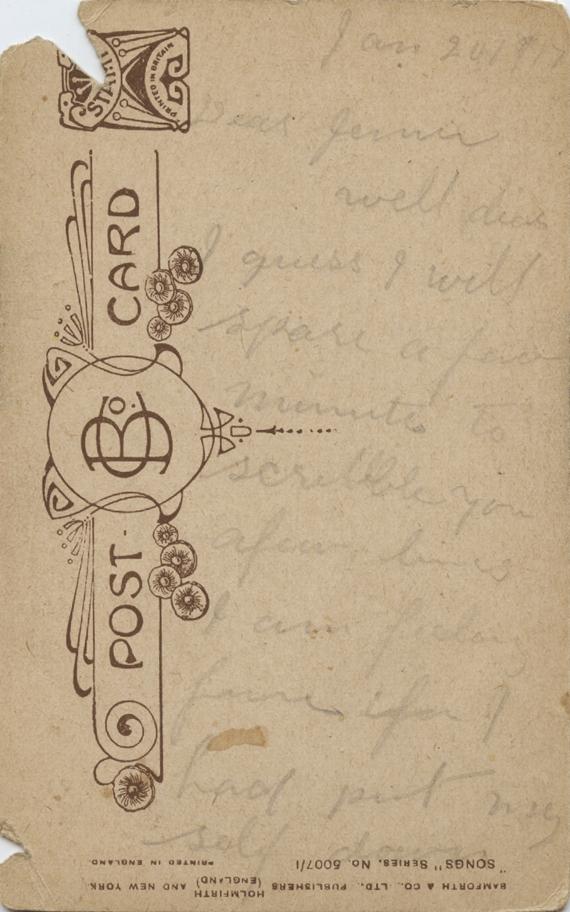 STAMP
PRINTED IN BRITAIN
POST CARD
B & Co.
Jan 20/17
Dear Jennie
well dear
I guess I will
spare a few
minutes to
scribble you
a few lines
I am feeling
fine if I
had put my
self down
"SONGS" SERIES, No. 5007/1
PRINTED IN ENGLAND.
BAMFORTH & CO., LTD., PUBLISHERS HOLMFIRTH (ENGLAND) AND NEW YORK.